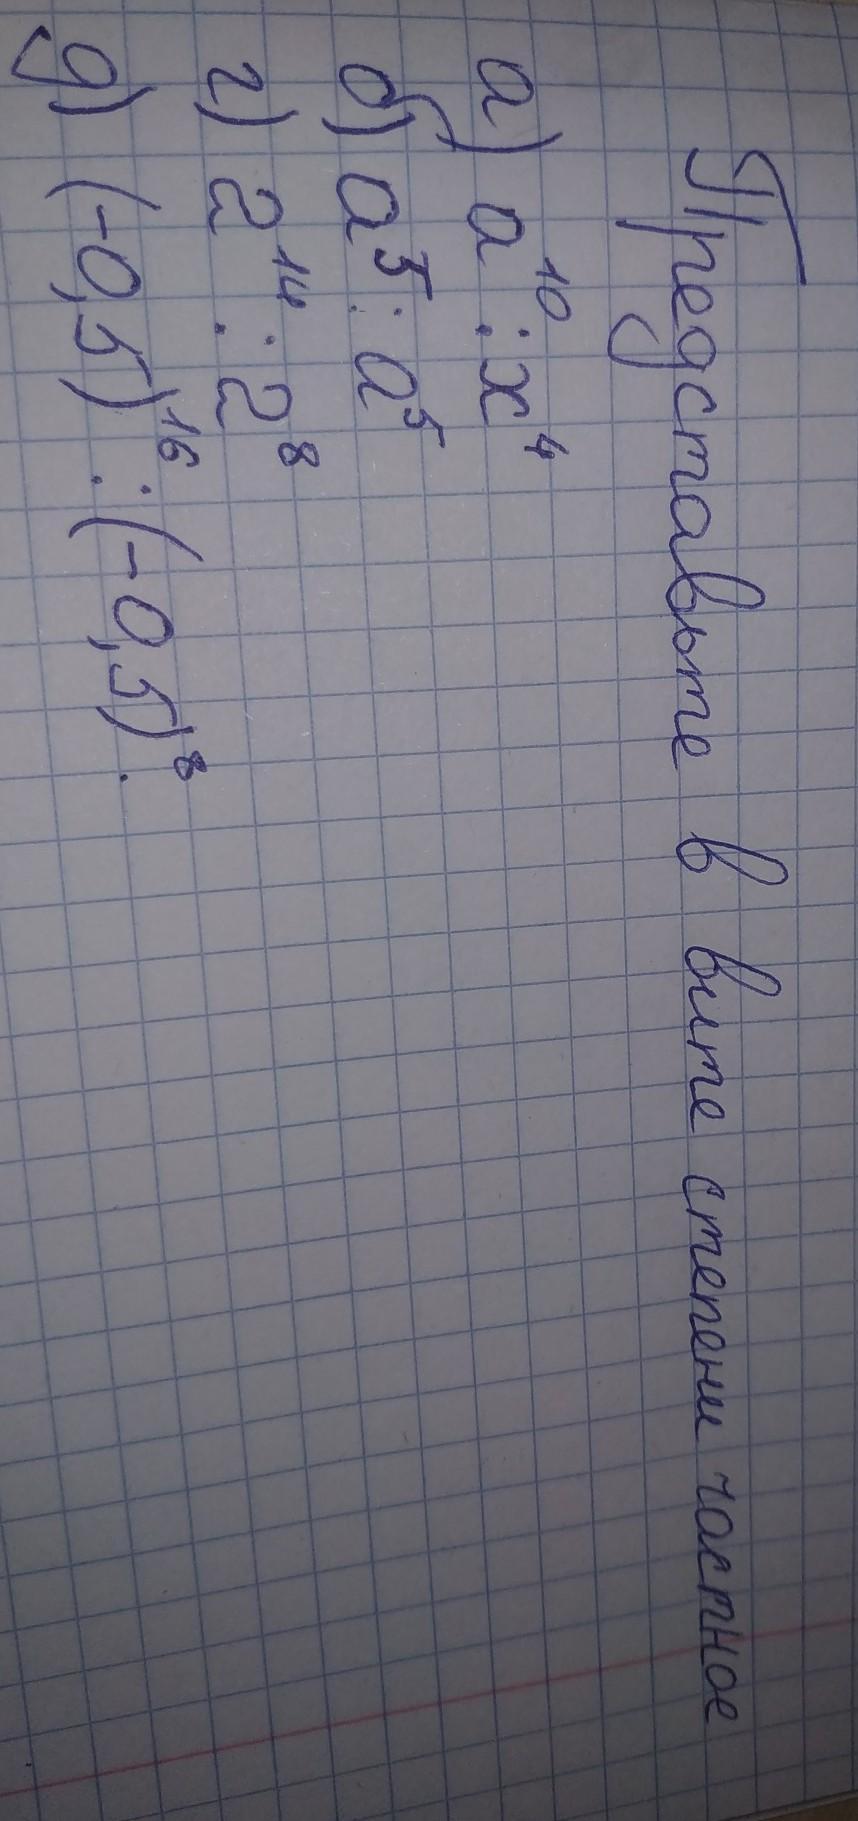 Представьте в вите степени частное
а) a¹⁰ : x⁴
б) a⁵ : a⁵
г) 2¹⁴ : 2⁸
д) (-0,5)¹⁶ : (-0,5)⁸.